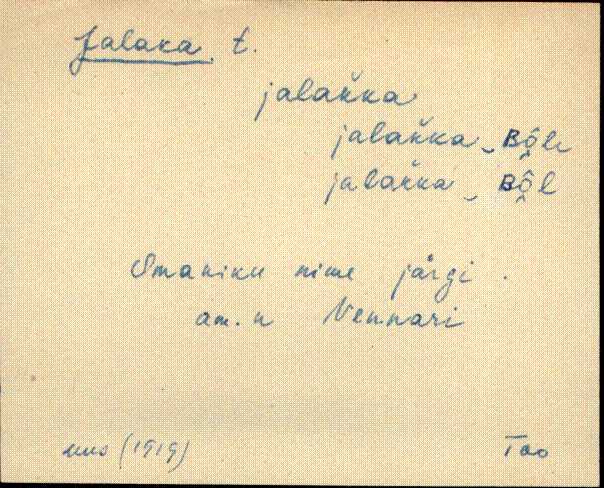 Jalaka t.
jalakka
jalakka‿Bôle
jalakka‿Bôl
Omaniku nime järgi.
am. n Vennari
uus (1919)